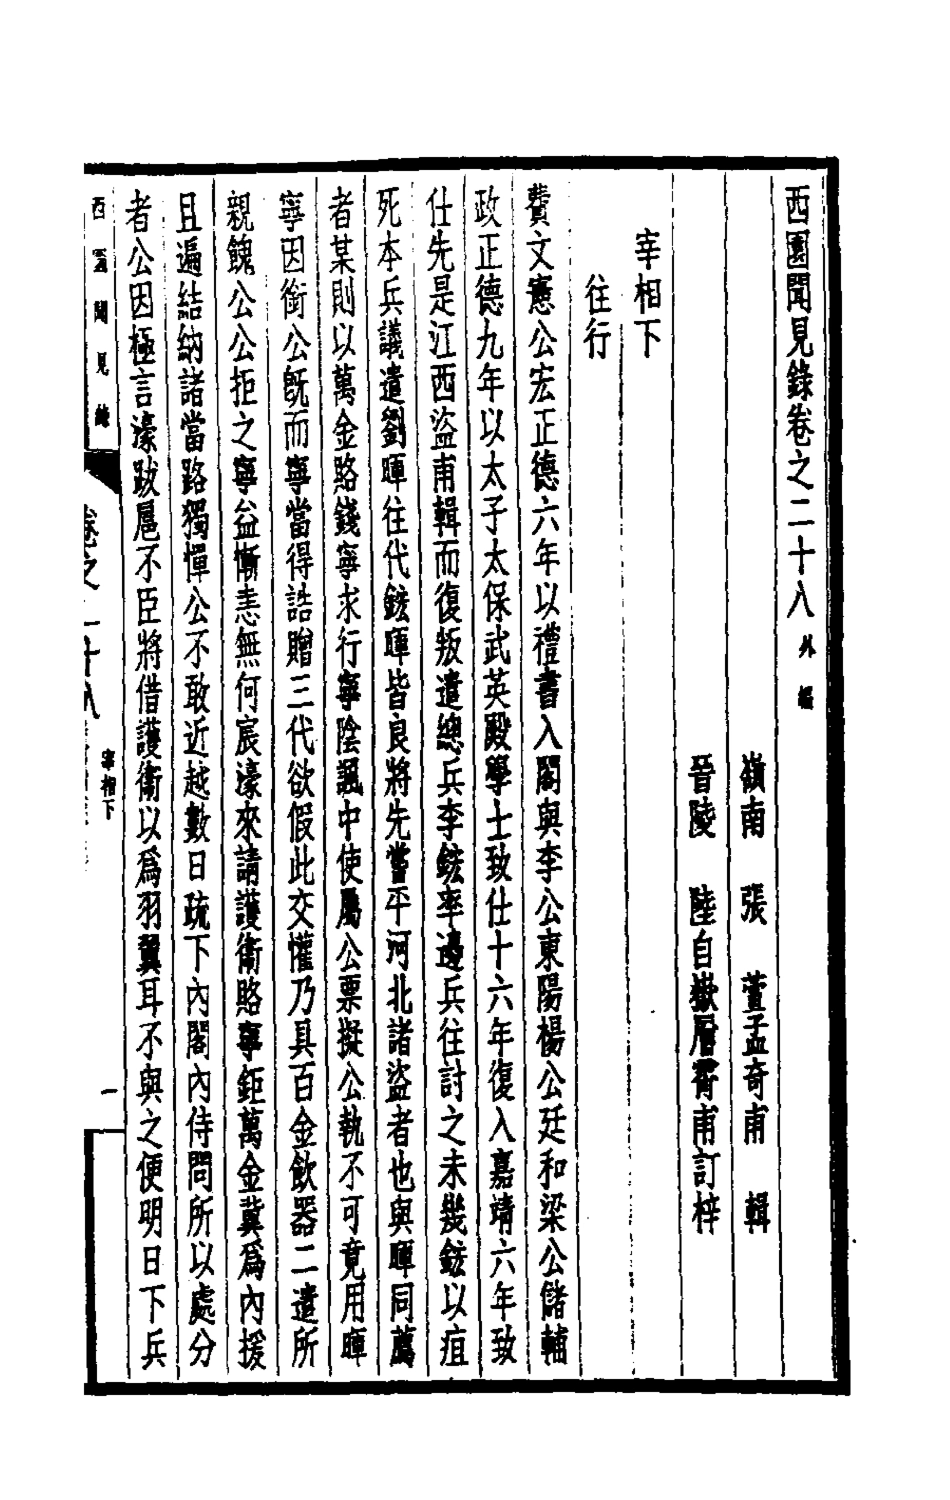 西園聞見錄卷之二十八 外編
嶺南 張 萱孟奇甫 輯
晉陵 陸自嶽層霄甫訂梓
宰相下
往行
費文憲公宏正德六年以禮書入閣與李公東陽楊公廷和梁公儲輔
政正德九年以太子太保武英殿學士致仕十六年復入嘉靖六年致
仕先是江西盜甫輯而復叛遣總兵李鋐率邊兵往討之未幾鋐以疽
死本兵議遣劉暉往代鋐暉皆良將先嘗平河北諸盜者也與暉同薦
者某則以萬金賂錢寧求行寧陰諷中使屬公票擬公執不可竟用暉
寧因銜公既而寧當得誥贈三代欲假此交懽乃具百金飲器二遣所
親餽公公拒之寧益慚恚無何宸濠來請護衞賂寧鉅萬金冀爲內援
且遍結納諸當路獨憚公不敢近越數日疏下內閣內侍問所以處分
者公因極言濠跋扈不臣將借護衞以爲羽翼耳不與之便明日下兵
西園聞見錄
卷之二十八
宰相下
一